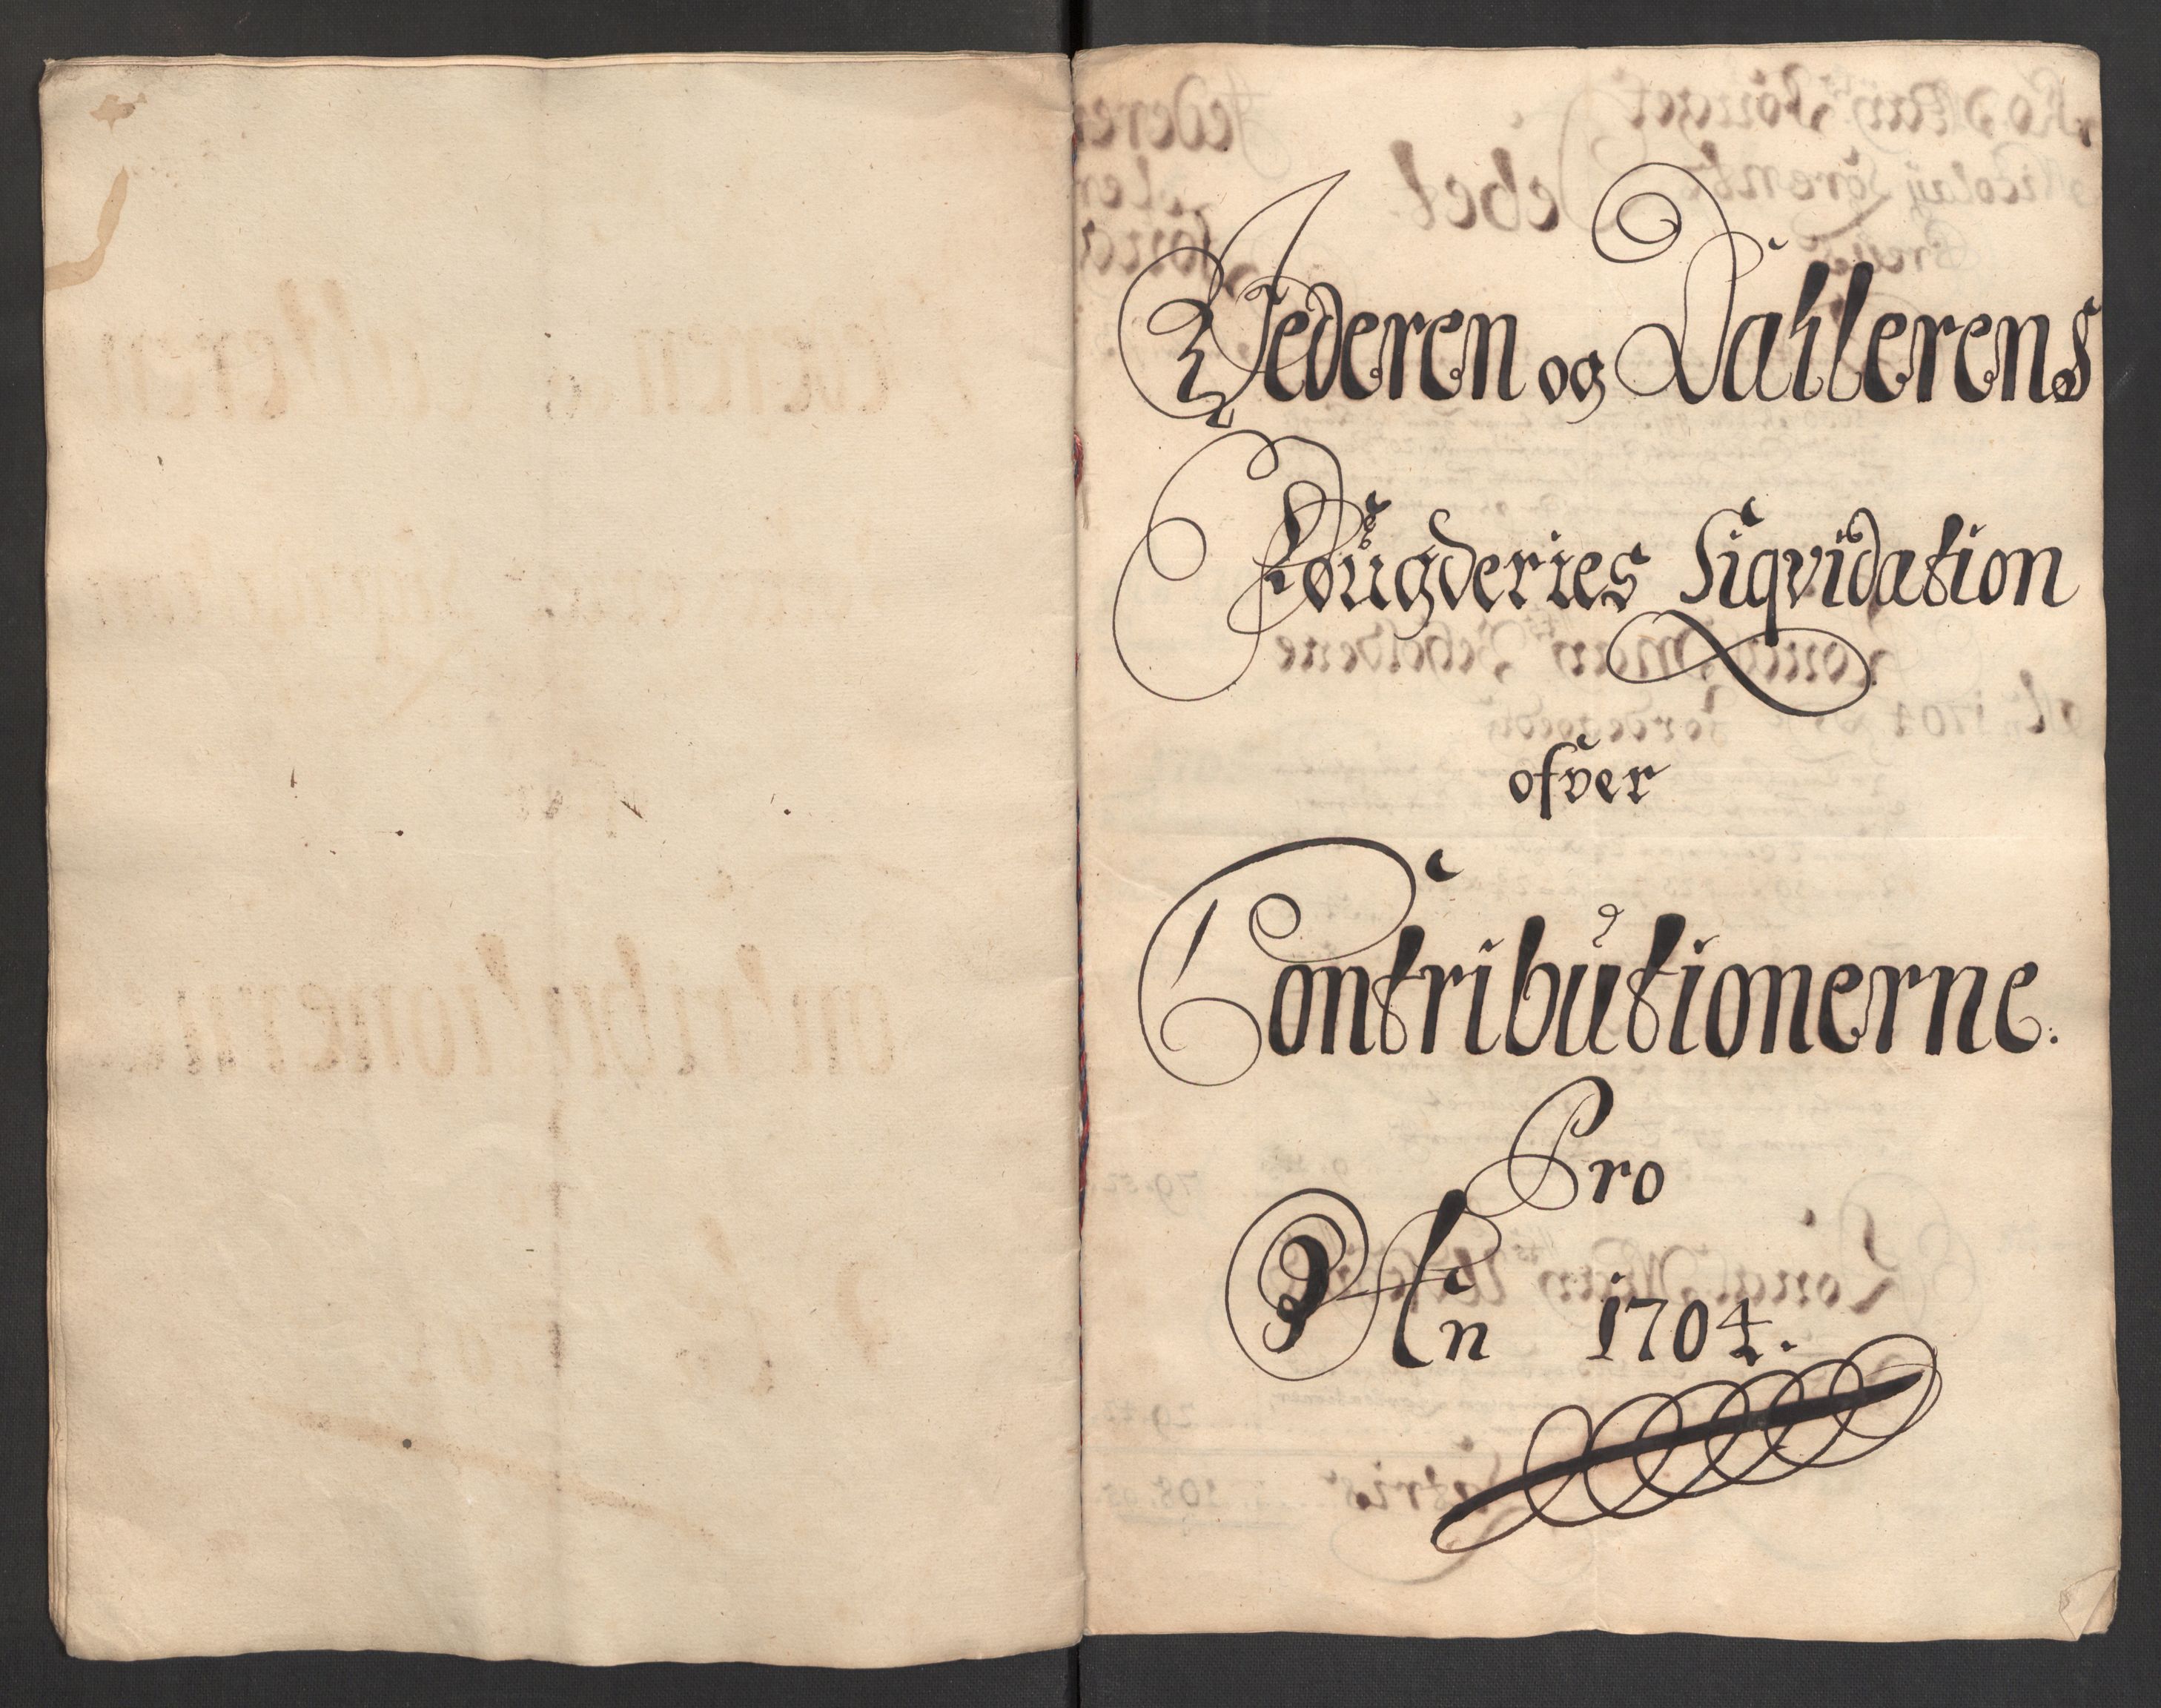 Jederen og Dahlerens
Fougderies Liqvidation
ofver
Contributionerne.
Pro
An 1704.